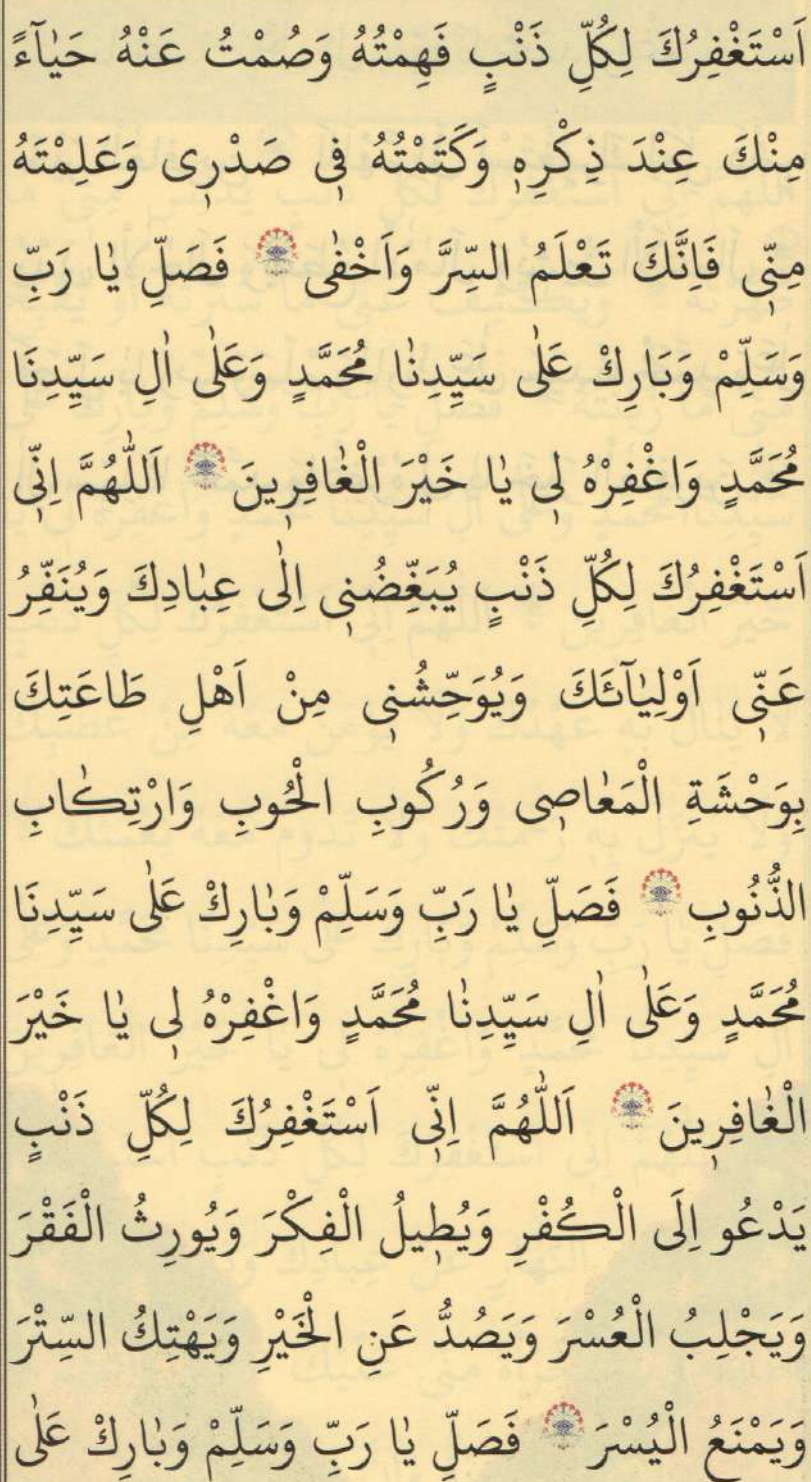 اَسْتَغْفِرُكَ لِكُلِّ ذَنْبٍ فَهِمْتُهُ وَصُمْتُ عَنْهُ حَيٰٓاءً
مِنْكَ عِنْدَ ذِكْرِهٖ وَكَتَمْتُهُ فٖى صَدْرٖى وَعَلِمْتَهُ
مِنّٖى فَاِنَّكَ تَعْلَمُ السِّرَّ وَاَخْفٰى فَصَلِّ يٰا رَبِّ
وَسَلِّمْ وَبَارِكْ عَلٰى سَيِّدِنٰا مُحَمَّدٍ وَعَلٰى اٰلِ سَيِّدِنَا
مُحَمَّدٍ وَاغْفِرْهُ لٖى يٰا خَيْرَ الْغٰافِرٖينَ اَللّٰهُمَّ اِنّٖى
اَسْتَغْفِرُكَ لِكُلِّ ذَنْبٍ يُبَغِّضُنٖى اِلٰى عِبٰادِكَ وَيُنَفِّرُ
عَنّٖى اَوْلِيٰٓائَكَ وَيُوَحِّشُنٖى مِنْ اَهْلِ طَاعَتِكَ
بِوَحْشَةِ الْمَعٰاصٖى وَرُكُوبِ الْحُوبِ وَارْتِكٰابِ
الذُّنُوبِ فَصَلِّ يٰا رَبِّ وَسَلِّمْ وَبٰارِكْ عَلٰى سَيِّدِنَا
مُحَمَّدٍ وَعَلٰى اٰلِ سَيِّدِنٰا مُحَمَّدٍ وَاغْفِرْهُ لٖى يٰا خَيْرَ
الْغٰافِرٖينَ اَللّٰهُمَّ اِنّٖى اَسْتَغْفِرُكَ لِكُلِّ ذَنْبٍ
يَدْعُو اِلَى الْكُفْرِ وَيُطٖيلُ الْفِكْرَ وَيُورِثُ الْفَقْرَ
وَيَجْلِبُ الْعُسْرَ وَيَصُدُّ عَنِ الْخَيْرِ وَيَهْتِكُ السِّتْرَ
وَيَمْنَعُ الْيُسْرَ فَصَلِّ يٰا رَبِّ وَسَلِّمْ وَبٰارِكْ عَلٰى